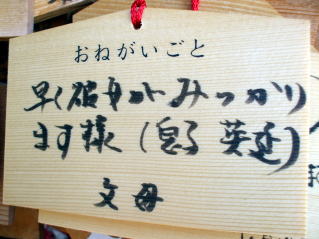 おねがいごと
早く彼女がみつかり
ます様(息子 英延)
文母